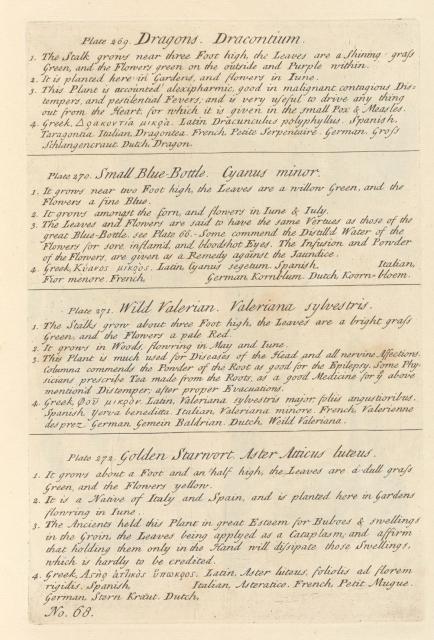 Plate 269. Dragons. Dracontium.
1. The Stalk grows near three Foot high, the Leaves are a Shining grass
Green, and the Flowers green on the outside and Purple within.
2. It is planted here in Gardens, and flowers in Iune.
3. This Plant is accounted alexipharmic, good in malignant contagious Dis-
tempers, and pestilential Fevers; and is very useful to drive any thing
out from the Heart, for which it is given in the small Pox & Measles.
4. Greek, Δρακοντία μικρὰ. Latin Dracunculus polyphyllus. Spanish,
Taragontia. Italian, Dragontea. French, Petite Serpentaire. German, Gross
Schlangencraut. Dutch, Dragon.
Plate 270. Small Blue-Bottle. Cyanus minor.
1. It grows near two Foot high, the Leaves are a willow Green, and the
Flowers a fine Blue.
2. It grows amongst the Corn, and flowers in Iune & Iuly.
3. The Leaves and Flowers are said to have the same Vertues as those of the
great Blue-Bottle, see Plate 66. Some commend the Distill'd Water of the
Flowers for sore, inflam'd, and bloodshot Eyes. The Infusion and Powder
of the Flowers, are given as a Remedy against the Iaundice.
4. Greek, Κύανος μικρὸς. Latin, Cyanus segetum. Spanish, Italian,
Fior menore. French, German, Kornblum. Dutch, Koorn-bloem.
Plate 271. Wild Valerian. Valeriana sylvestris.
1. The Stalks grow about three Foot high, the Leaves are a bright grass
Green, and the Flowers a pale Red.
2. It grows in Woods, flowring in May and Iune.
3. This Plant is much used for Diseases of the Head and all nervine Affections.
Columna commends the Powder of the Root as good for the Epilepsy. Some Phy-
sicians prescribe Tea made from the Roots, as a good Medicine for ye above
mention'd Distemper, after proper Evacuations.
4. Greek, Φοῦ μικρὸν. Latin, Valeriana sylvestris major foliis angustioribus.
Spanish, Yerva beneditta. Italian, Valeriana minore. French, Valerienne
desprez. German, Gemein Baldrian. Dutch, Weild Valeriana.
Plate 272. Golden Starwort. Aster Atticus luteus.
1. It grows about a Foot and an half high, the Leaves are a dull grass
Green, and the Flowers yellow.
2. It is a Native of Italy and Spain, and is planted here in Gardens
flowring in Iune.
3. The Ancients held this Plant in great Esteem for Buboes & swellings
in the Groin, the Leaves being applyed as a Cataplasm; and affirm
that holding them only in the Hand will dissipate those Swellings,
which is hardly to be credited.
4. Greek, ἀτικὸς Latin, Aster luteus, foliolis ad florem
rigidis. Spanish, Italian, Asteratico. French, Petit Mugue.
German, Stern Kraut. Dutch,
No. 68.